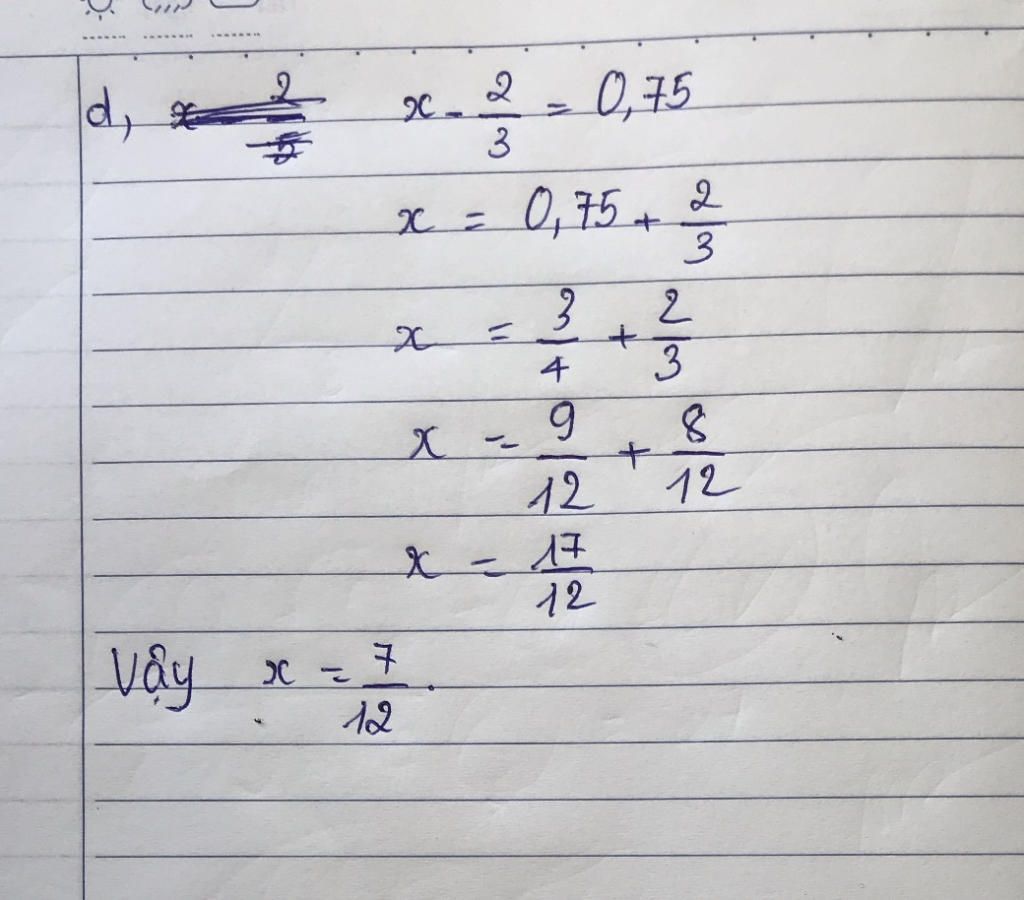 d, x - 2/3 = 0,75
x = 0,75 + 2/3
x = 3/4 + 2/3
x = 9/12 + 8/12
x = 17/12
Vậy x = 7/12.